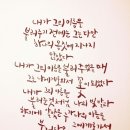 내가 그의 이름을
불러주기 전에는 그는 다만
하나의 몸짓에 지나지
않았다
내가 그의 이름을 불러 주었을 때
그는 나에게로 와서 꽃이 되었다
내가 그의 이름을
불러준 것처럼 나의 빛깔과
향기에 알맞은 누가 나의 이름을